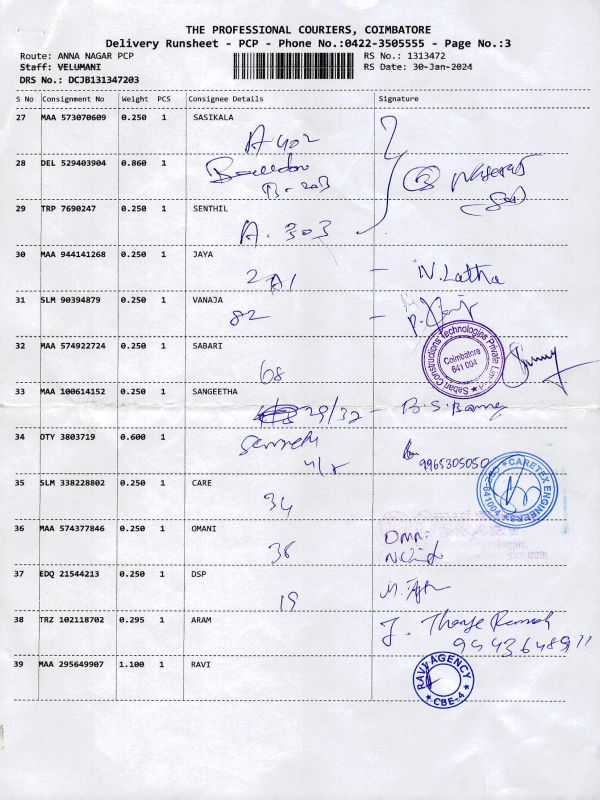 THE PROFESSIONAL COURIERS, COIMBATORE
Delivery Runsheet - PCP - Phone No.:0422-3505555 - Page No.:3
Route: ANNA NAGAR PCP RS No.: 1313472
Staff: VELUMANI RS Date: 30-Jan-2024
DRS No.: DCJB131347203
S No Consignment No Weight PCS Consignee Details Signature
27 MAA 573070609 0.250 1 SASIKALA
A 402
28 DEL 529403904 0.860 1
B-203
29 TRP 7690247 0.250 1 SENTHIL
A. 303
30 MAA 944141268 0.250 1 JAYA
2 A1 - N. Latha
31 SLM 90394879 0.250 1 VANAJA
82
32 MAA 574922724 0.250 1 SABARI
Sabari Constructions Technologies Private Limited
Coimbatore
641 004
68
33 MAA 100614152 0.250 1 SANGEETHA
29/32 - B.S.
34 OTY 3803719 0.600 1
9965305050
35 SLM 338228802 0.250 1 CARE
CARETEX ENGINEERS
CBE-641004
34
36 MAA 574377846 0.250 1 OMANI
38
37 EDQ 21544213 0.250 1 DSP
19
38 TRZ 102118702 0.295 1 ARAM
J.
9943648911
39 MAA 295649907 1.100 1 RAVI
RAVI AGENCY
CBE-4